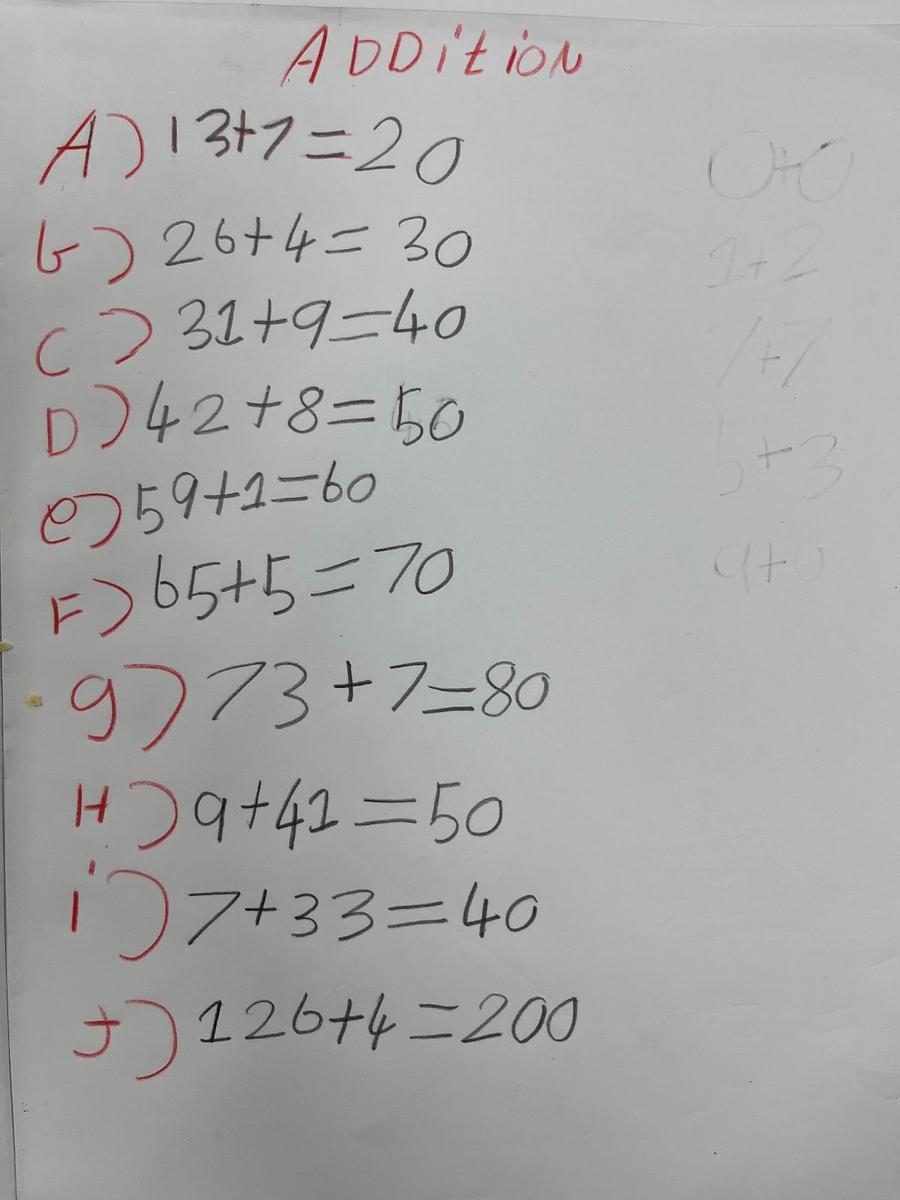 ADDition
A) 13+7=20
b) 26+4=30
C) 31+9=40
D) 42+8=50
e) 59+1=60
F) 65+5=70
g) 73+7=80
H) 9+41=50
i) 7+33=40
J) 126+4=200
0+0
1+2
7+7
5+3
9+0